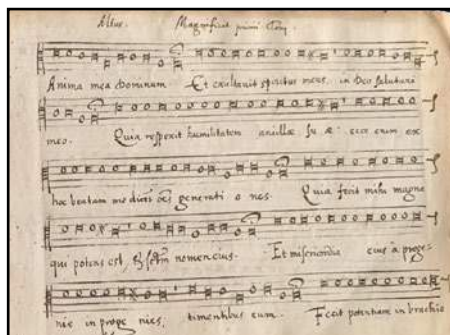 Altus. Magnificat primi Toni.
Anima mea Dominum Et exultavit spiritus meus, in Deo salutari
meo. Quia respexit humilitatem ancillæ su æ: ecce enim ex
hoc beatam me dicēt oēs generati o nes. Quia fecit mihi magna
qui potens est, & nomen eius. Et misericordia eius a proge=
nie in proge nies, timentibus eum. Fecit potentiam in brachio